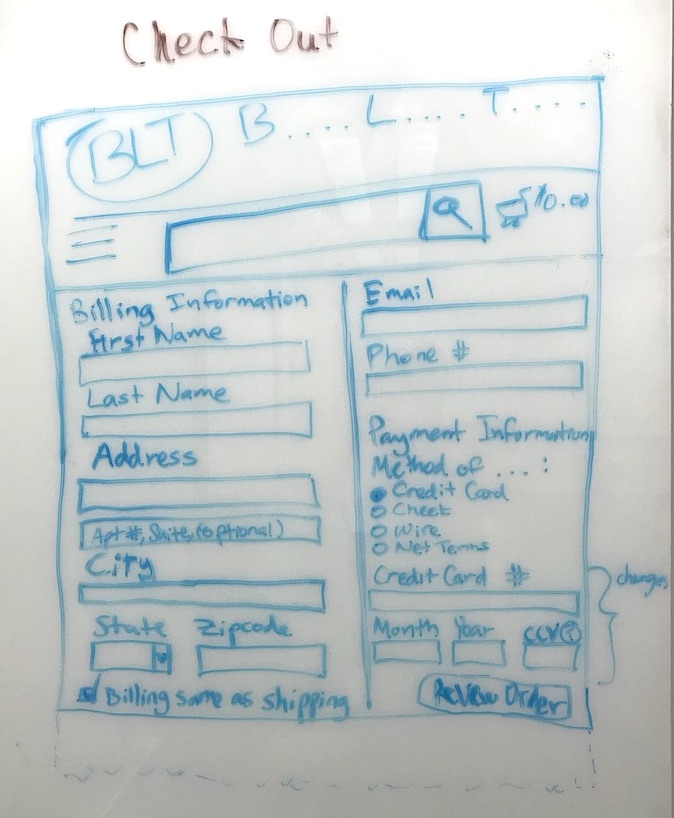 Check Out
BLT B.... L.... T....
$10.00
Billing Information
First Name
Last Name
Address
Apt #, Suite, (optional)
City
State Zipcode
Billing same as shipping
Email
Phone #
Payment Information
Method of ... :
Credit Card
Check
Wire
Net Terms
Credit Card #
Month Year CCV ?
Review Order
changes